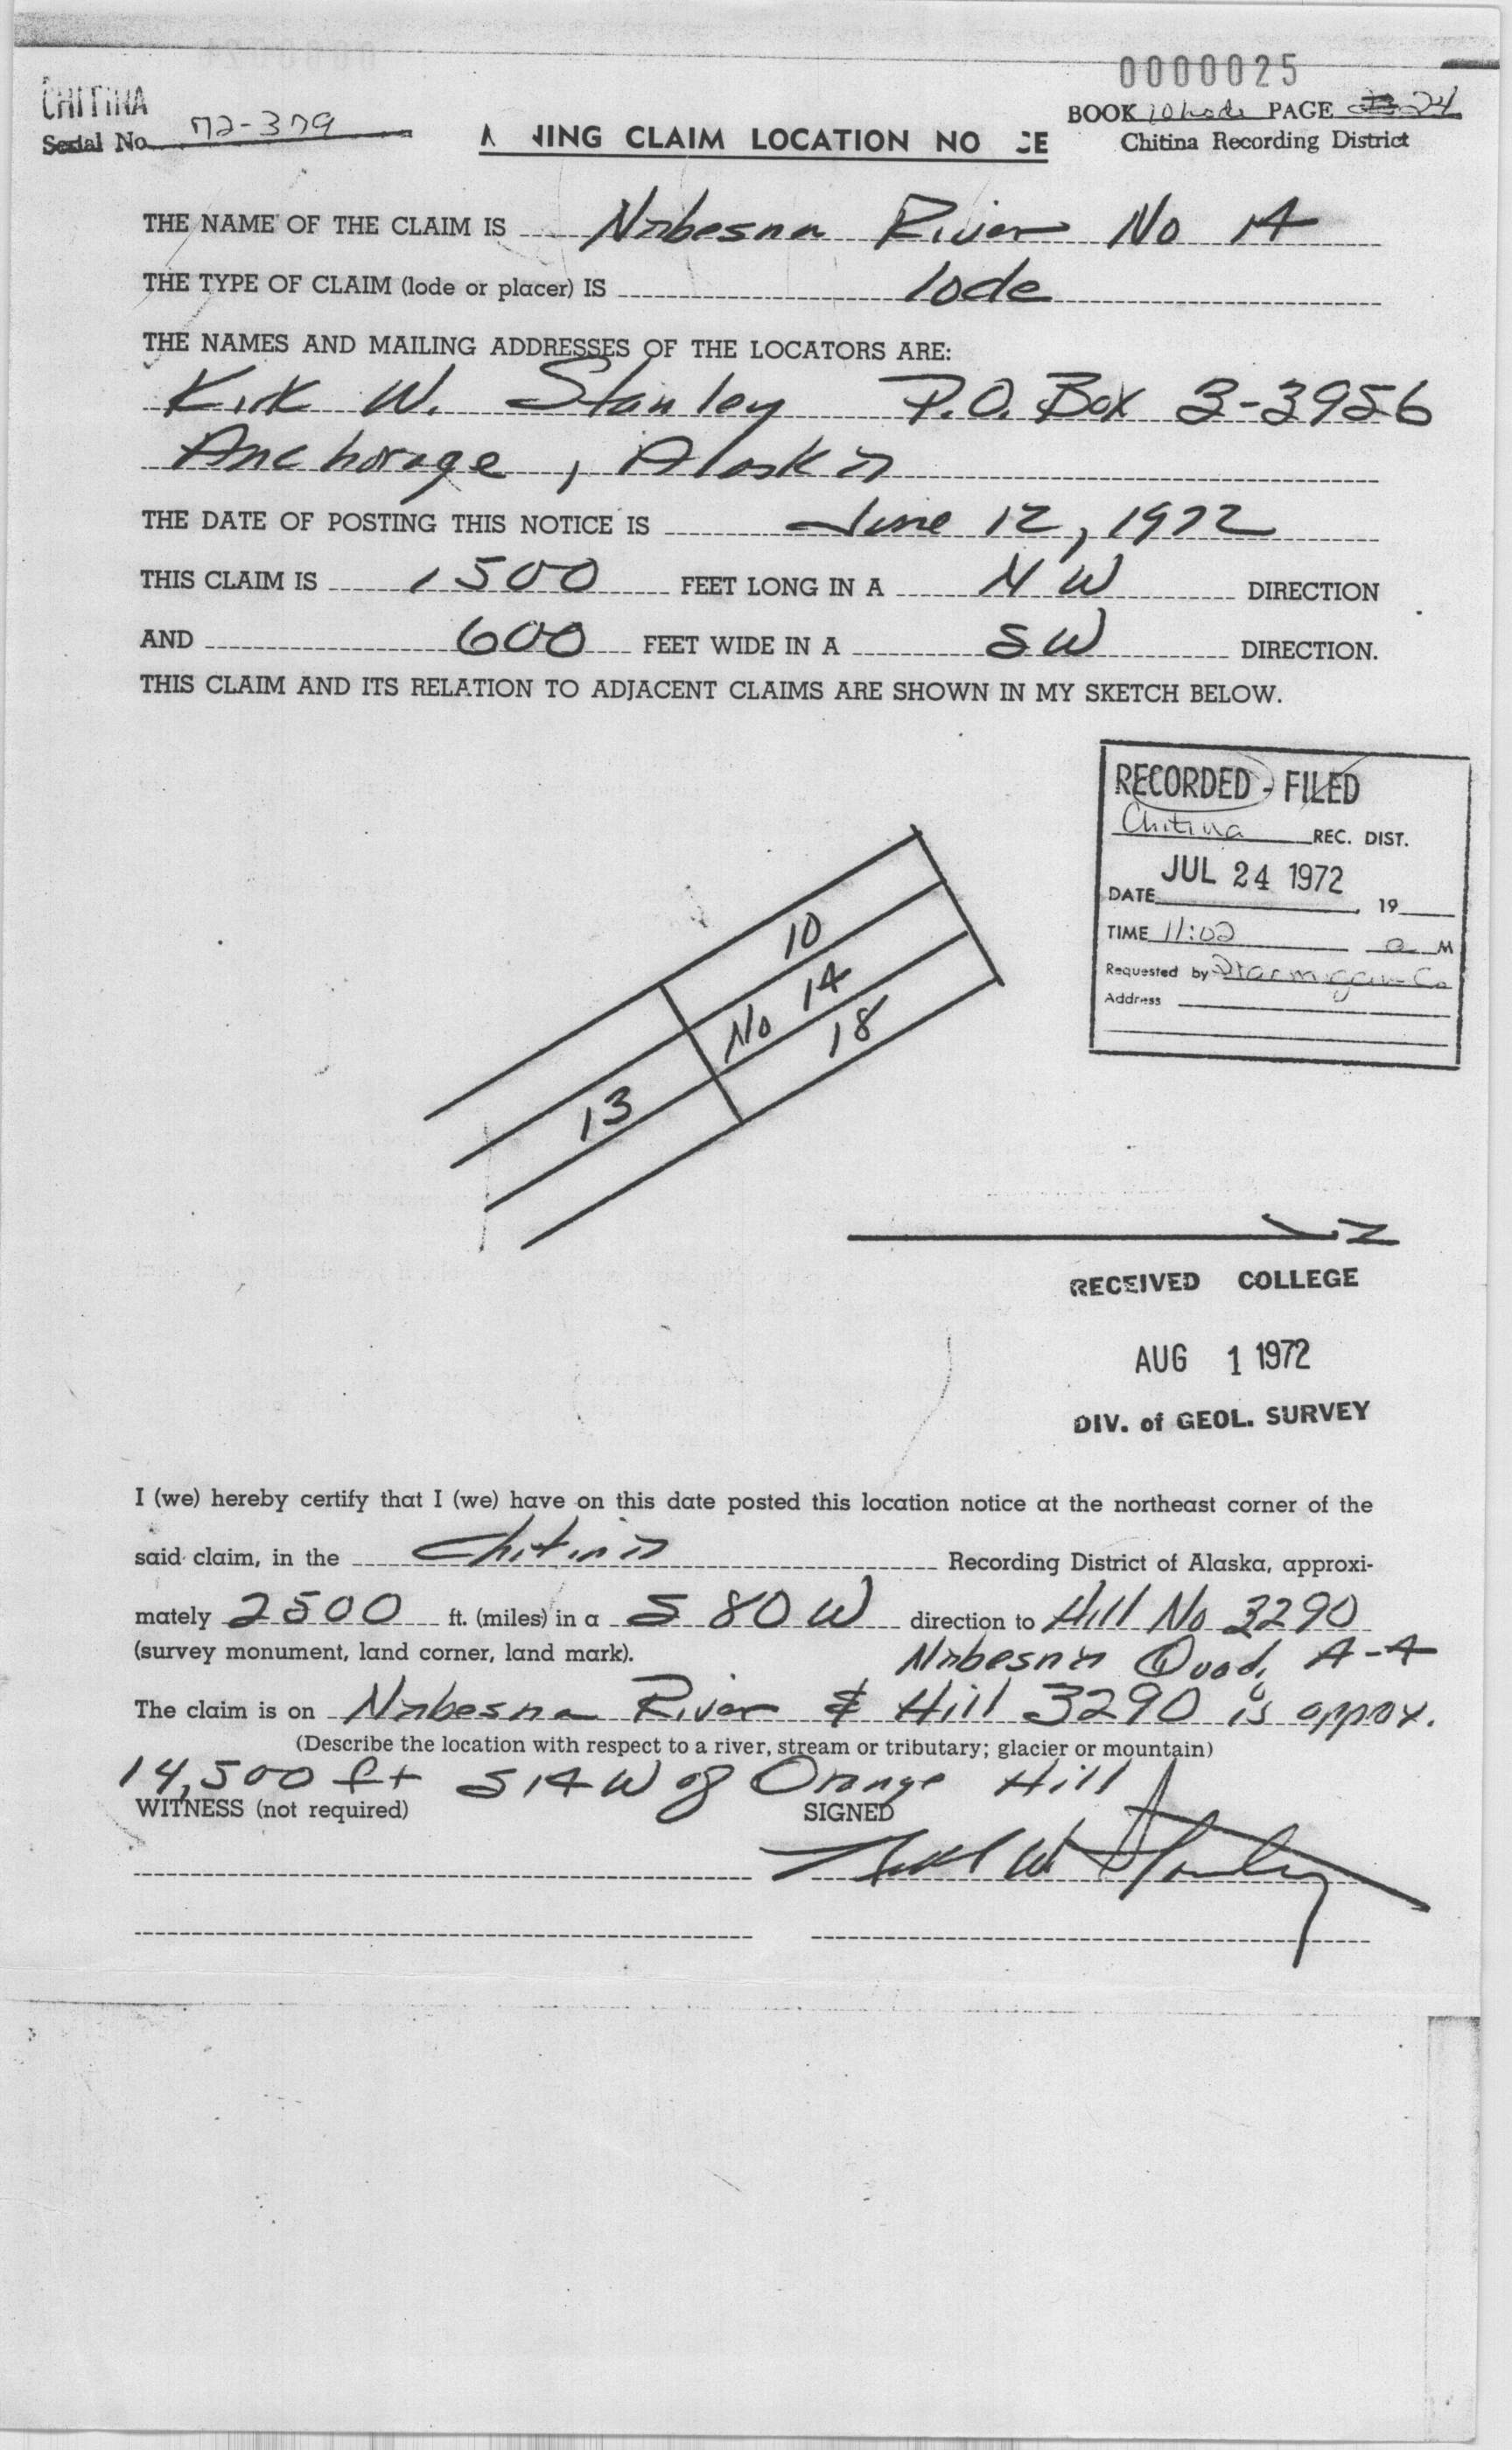 0000025
CHITINA
Serial No. 72-379
BOOK 10 Lode PAGE 24
NING CLAIM LOCATION NO CE
Chitina Recording District
THE NAME OF THE CLAIM IS Nabesna River No 14
THE TYPE OF CLAIM (lode or placer) IS lode
THE NAMES AND MAILING ADDRESSES OF THE LOCATORS ARE:
Kirk W. Stanley P.O. Box 3-3956
Anchorage, Alaska
THE DATE OF POSTING THIS NOTICE IS June 12, 1972
THIS CLAIM IS 1500 FEET LONG IN A NW DIRECTION
AND 600 FEET WIDE IN A SW DIRECTION.
THIS CLAIM AND ITS RELATION TO ADJACENT CLAIMS ARE SHOWN IN MY SKETCH BELOW.
RECORDED - FILED
Chitina REC. DIST.
JUL 24 1972
DATE , 19
TIME 11:02 a M
Requested by Ptarmigan Co
Address
10
No 14
18
13
N
RECEIVED COLLEGE
AUG 1 1972
DIV. of GEOL. SURVEY
I (we) hereby certify that I (we) have on this date posted this location notice at the northeast corner of the
said claim, in the Chitina Recording District of Alaska, approxi-
mately 2500 ft. (miles) in a S 80 W direction to Hill No 3290
(survey monument, land corner, land mark). Nabesna Quad. A-4
The claim is on Nabesna River & Hill 3290 is approx.
(Describe the location with respect to a river, stream or tributary; glacier or mountain)
14,500 ft S 14 W of Orange Hill
WITNESS (not required) SIGNED
Kirk W. Stanley